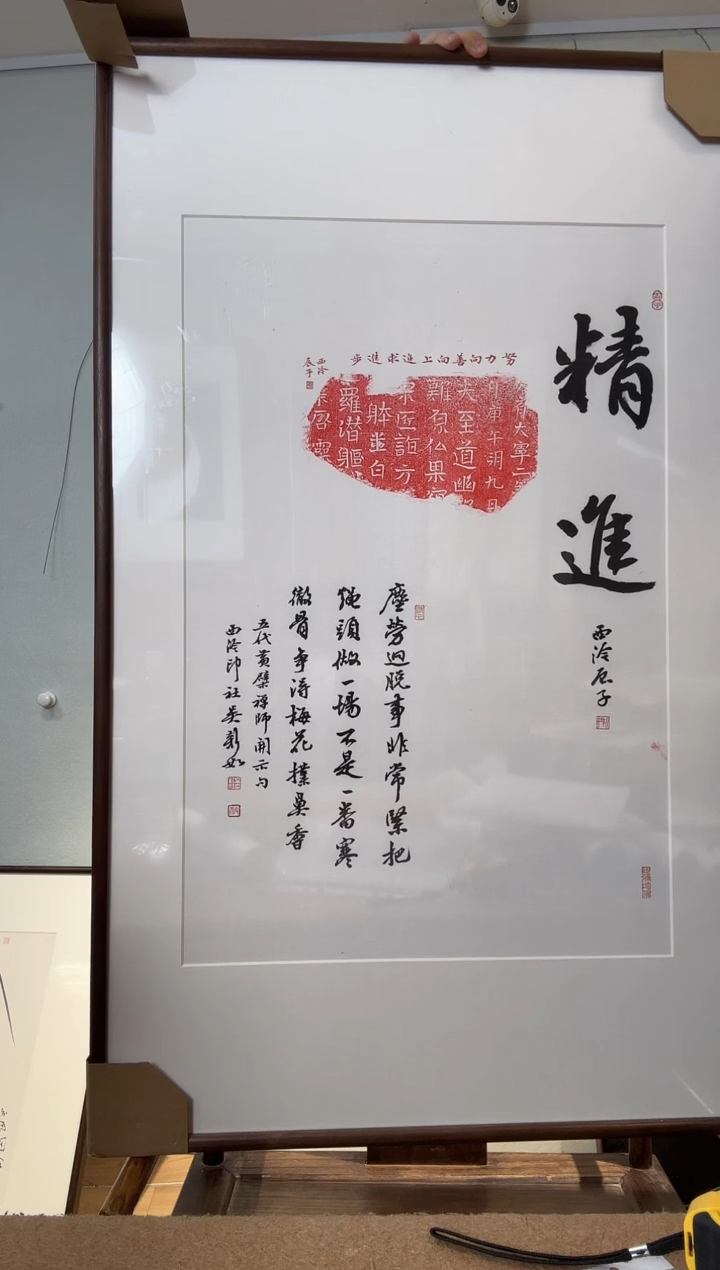 精進
西泠辰子
努力向善向上追求進步
西泠
辰子
大寧二
月庚午朔九日
夫至道幽
難原仏果
宗匠詎方
躰並白
羅潛軀
啓靈
塵勞迥脫事非常緊把
繩頭做一場不是一番寒
徹骨爭得梅花撲鼻香
五代黃檗禪師開示句
西泠印社吳